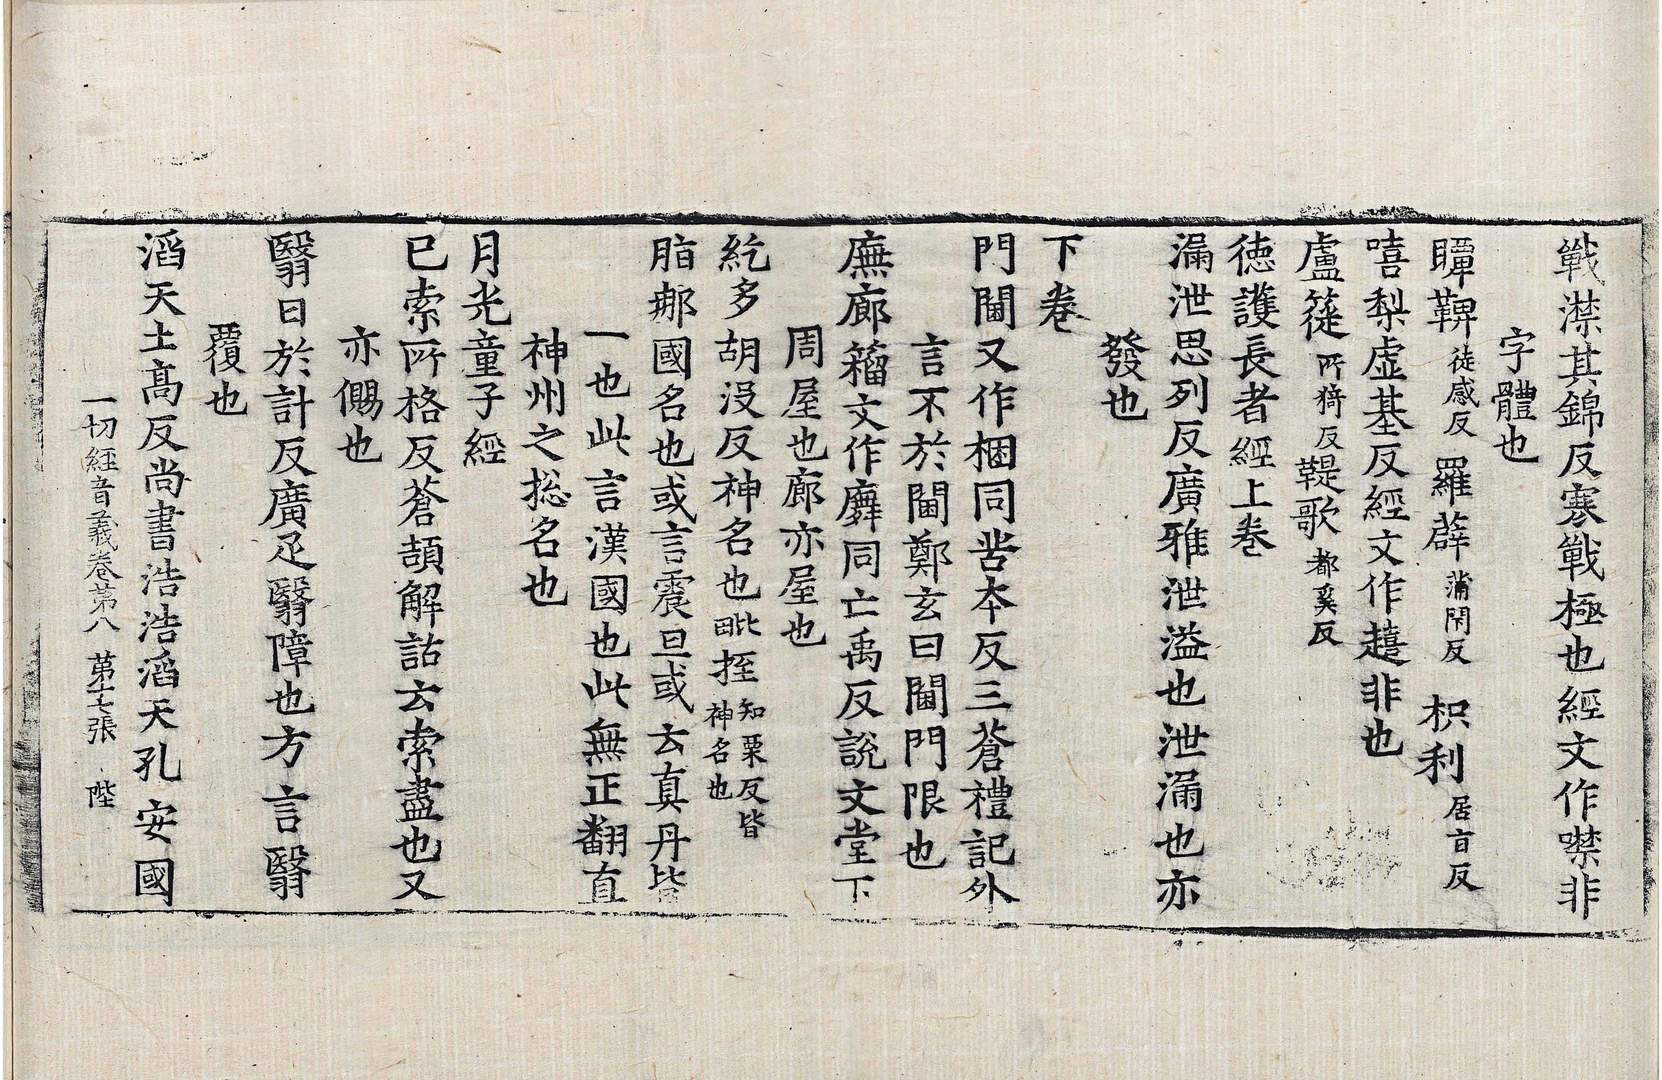 戰澿其錦反寒戰極也經文作噤非
字體也
瞫鞞徒感反羅薜蒲閇反枳利居言反
嘻梨虛基反經文作𧽐非也
盧簁所猗反鞮歌都奚反
徳護長者經上卷
漏泄思列反廣雅泄溢也泄漏也亦
發也
下卷
門閫又作梱同苦本反三蒼禮記外
言不於閫鄭玄曰閫門限也
廡廊籕文作廡同亡禹反說文堂下
周屋也廊亦屋也
紇多胡沒反神名也毗挃知栗反皆神名也
脂那國名也或言震旦或云真丹皆
一也此言漢國也此無正翻直
神州之揔名也
月光童子經
已索所格反蒼頡解詁云索盡也又
亦儩也
翳日於計反廣疋翳障也方言翳
覆也
滔天土高反尚書浩浩滔天孔安國
一切經音義卷苐八 苐十七張 陛